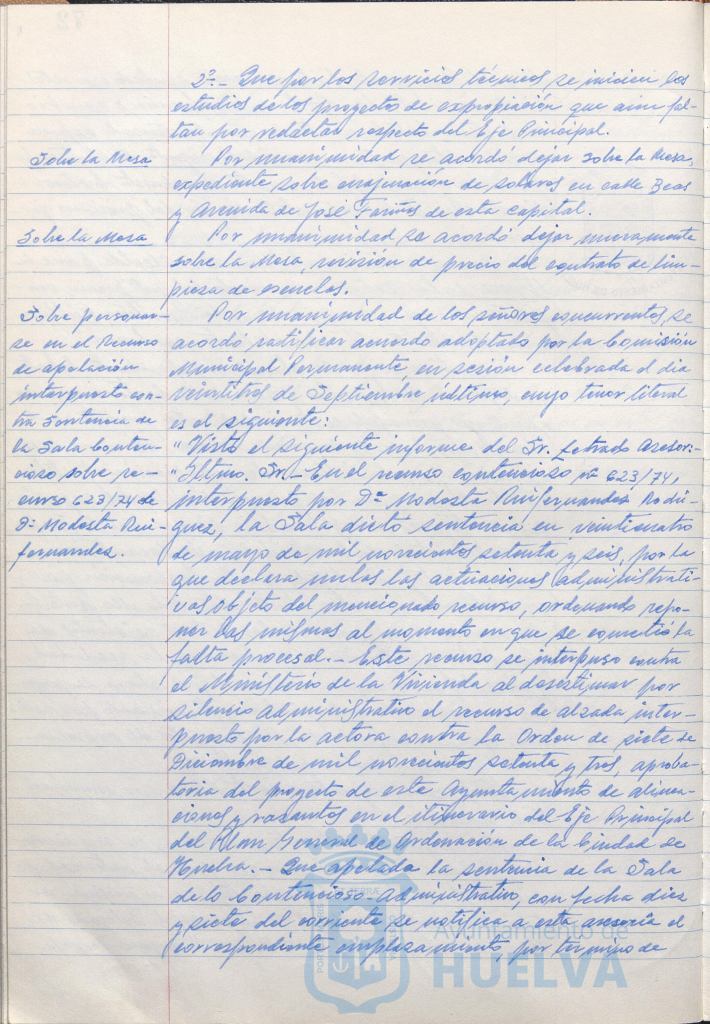 2º.- Que por los servicios técnicos, se inicien los
estudios de los proyectos de expropiación que aún fal-
tan por redactar respecto del Eje Principal.
Sobre la Mesa
Por unanimidad se acordó dejar sobre la Mesa,
expediente sobre enajenación de solares en calle Beas
y Avenida de José Fariñas de esta capital.
Sobre la Mesa
Por unanimidad se acordó dejar nuevamente
sobre la Mesa, revisión de precio del contrato de lim-
pieza de escuelas.
Sobre personar-
se en el Recurso
de apelación
interpuesto con-
tra Sentencia de
la Sala Conten-
cioso sobre re-
curso 623/74 de
Dª Modesta Rui-
fernandez.
Por unanimidad de los señores concurrentes se
acordó ratificar acuerdo adoptado por la Comisión
Municipal Permanente, en sesión celebrada el día
veintitres de Septiembre último, cuyo tenor literal
es el siguiente:
"Visto el siguiente informe del Sr. Letrado Asesor:-
"Iltmo. Sr.- En el recurso contencioso nº 623/74,
interpuesto por Dª Modesta Ruifernandez Rodri-
guez, la Sala dictó sentencia en veinticuatro
de mayo de mil novecientos setenta y seis, por la
que declara nulas las actuaciones administrati-
vas objeto del mencionado recurso, ordenando repo-
ner las mismas al momento en que se cometió la
falta procesal.- Este recurso se interpuso contra
el Ministerio de la Vivienda al desestimar por
silencio administrativo el recurso de alzada inter-
puesto por la actora contra la Orden de siete de
Diciembre de mil novecientos setenta y tres, aproba-
toria del proyecto de este Ayuntamiento de alinea-
ciones y rasantes en el itinerario del Eje Principal
del Plan General de Ordenación de la Ciudad de
Huelva.- Que apelada la sentencia de la Sala
de lo Contencioso-Administrativo, con fecha diez
y siete del corriente se notifica a esta asesoría el
correspondiente emplazamiento, por término de
Ayuntamiento de
HUELVA